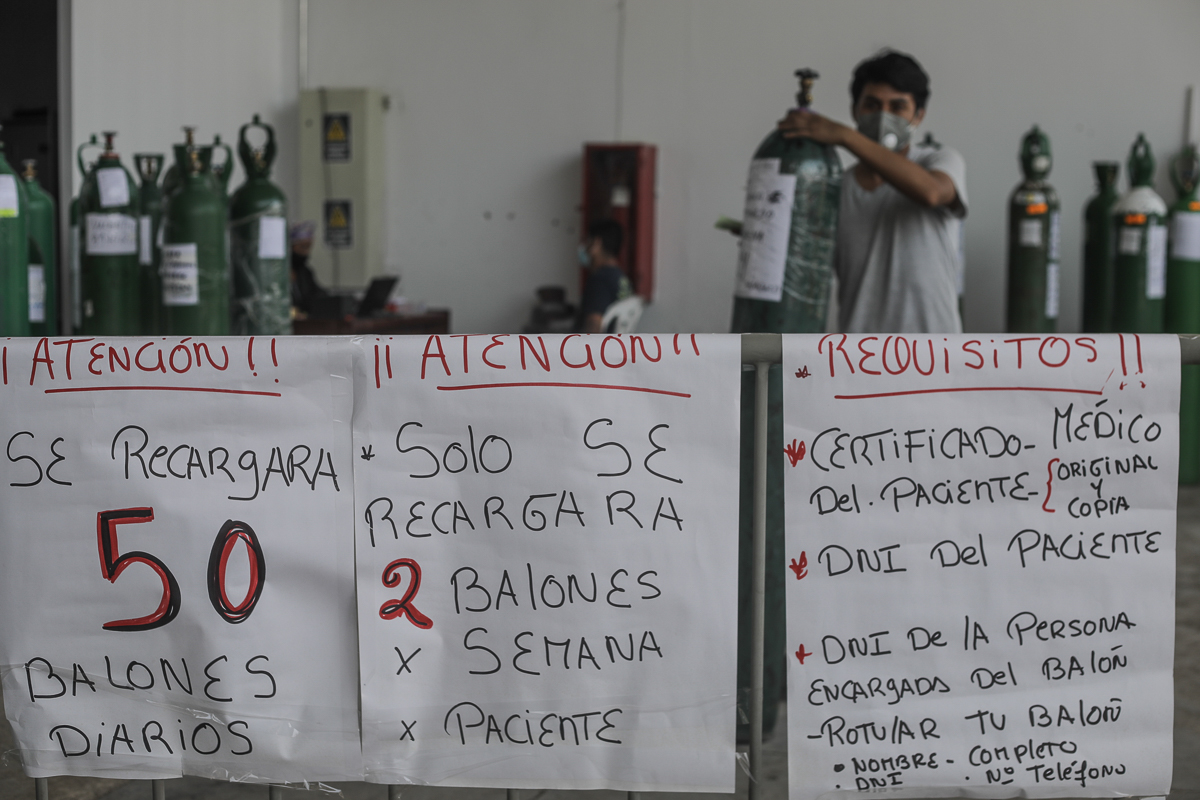 ¡ATENCIÓN!!
SE RECARGARA
50
BALONES
DIARIOS
¡¡ ATENCIÓN!!
* Solo SE
RECARGARA
2 BALONES
x SEMANA
x PACIENTE
* REQUISITOS!!
* CERTIFICADO- MÉDICO
Del. PACIENTE- { ORIGINAL
Y
COPIA
* DNI Del PACIENTE
* DNI De lA PERSONA
ENCARGADA Del BALOÑ
-ROTULAR TU BALOÑ
• NOMBRE - COMPLETO
• DNI • Nº Teléfono